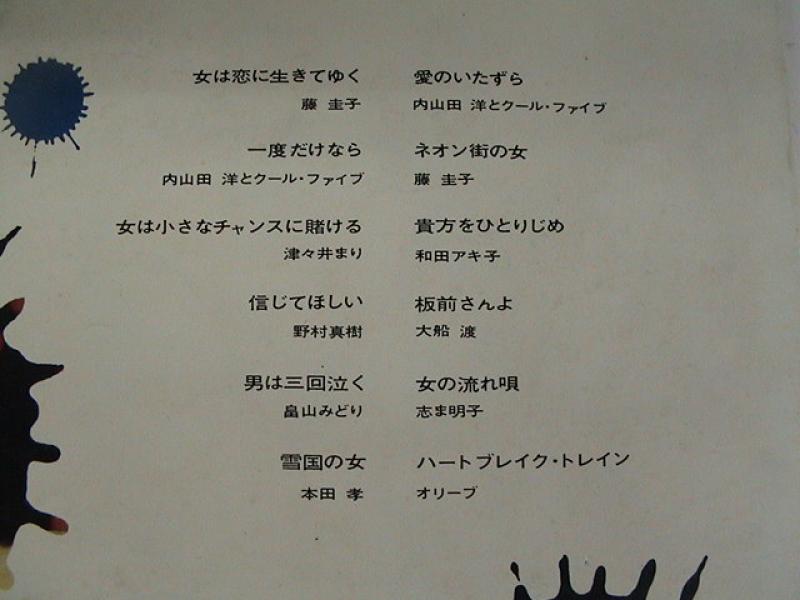 女は恋に生きてゆく
藤 圭子
一度だけなら
内山田 洋とクール・ファイブ
女は小さなチャンスに賭ける
津々井まり
信じてほしい
野村真樹
男は三回泣く
畠山みどり
雪国の女
本田 孝
愛のいたずら
内山田 洋とクール・ファイブ
ネオン街の女
藤 圭子
貴方をひとりじめ
和田アキ子
板前さんよ
大船 渡
女の流れ唄
志ま明子
ハートブレイク・トレイン
オリーブ